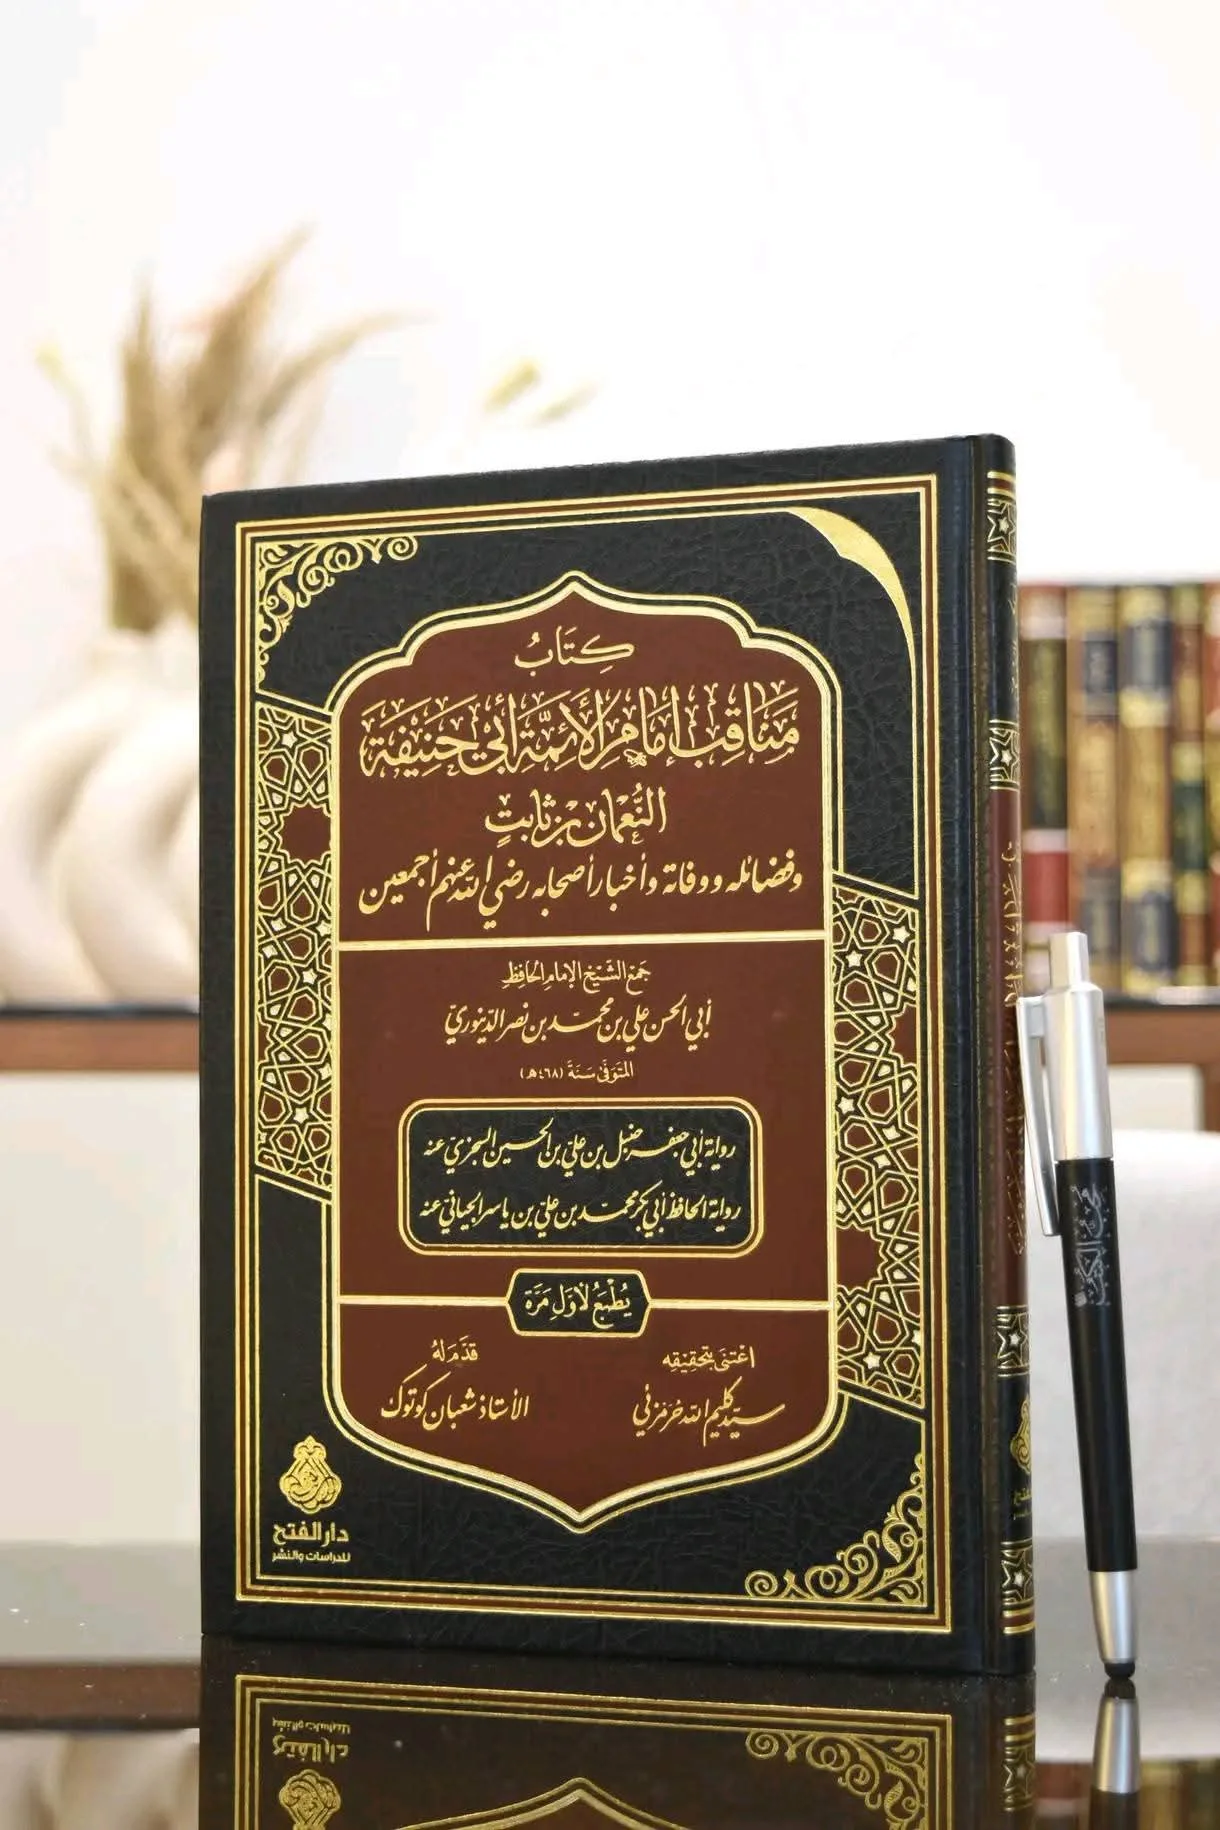 كِتَابُ
مَنَاقِبِ إِمَامِ الأَئِمَّةِ أَبِي حَنِيفَةَ
النُّعْمَانِ بْنِ ثَابِتٍ
وفضائله ووفاته وأخبار أصحابه رضي الله عنهم أجمعين
جَمع الشَّيْخ الإمام الحَافِظِ
أبي الحسن علي بن محمد بن نصر الدينوريّ
المتَوفّى سَنَة (٤٦٨هـ)
رواية أبي جعفر حنبل بن علي بن الحسين السجزي عنه
رواية الحافظ أبي بكر محمد بن علي بن ياسر الجياني عنه
يُطْبَعُ لأوَّل مَرَّة
اعْتنى بتَحقِيْقِه
سيّد كليم الله خرمزئي
قدّمَ لهُ
الأستاذ شعبان كوتوك
دار الفتح
للدراسات والنشر